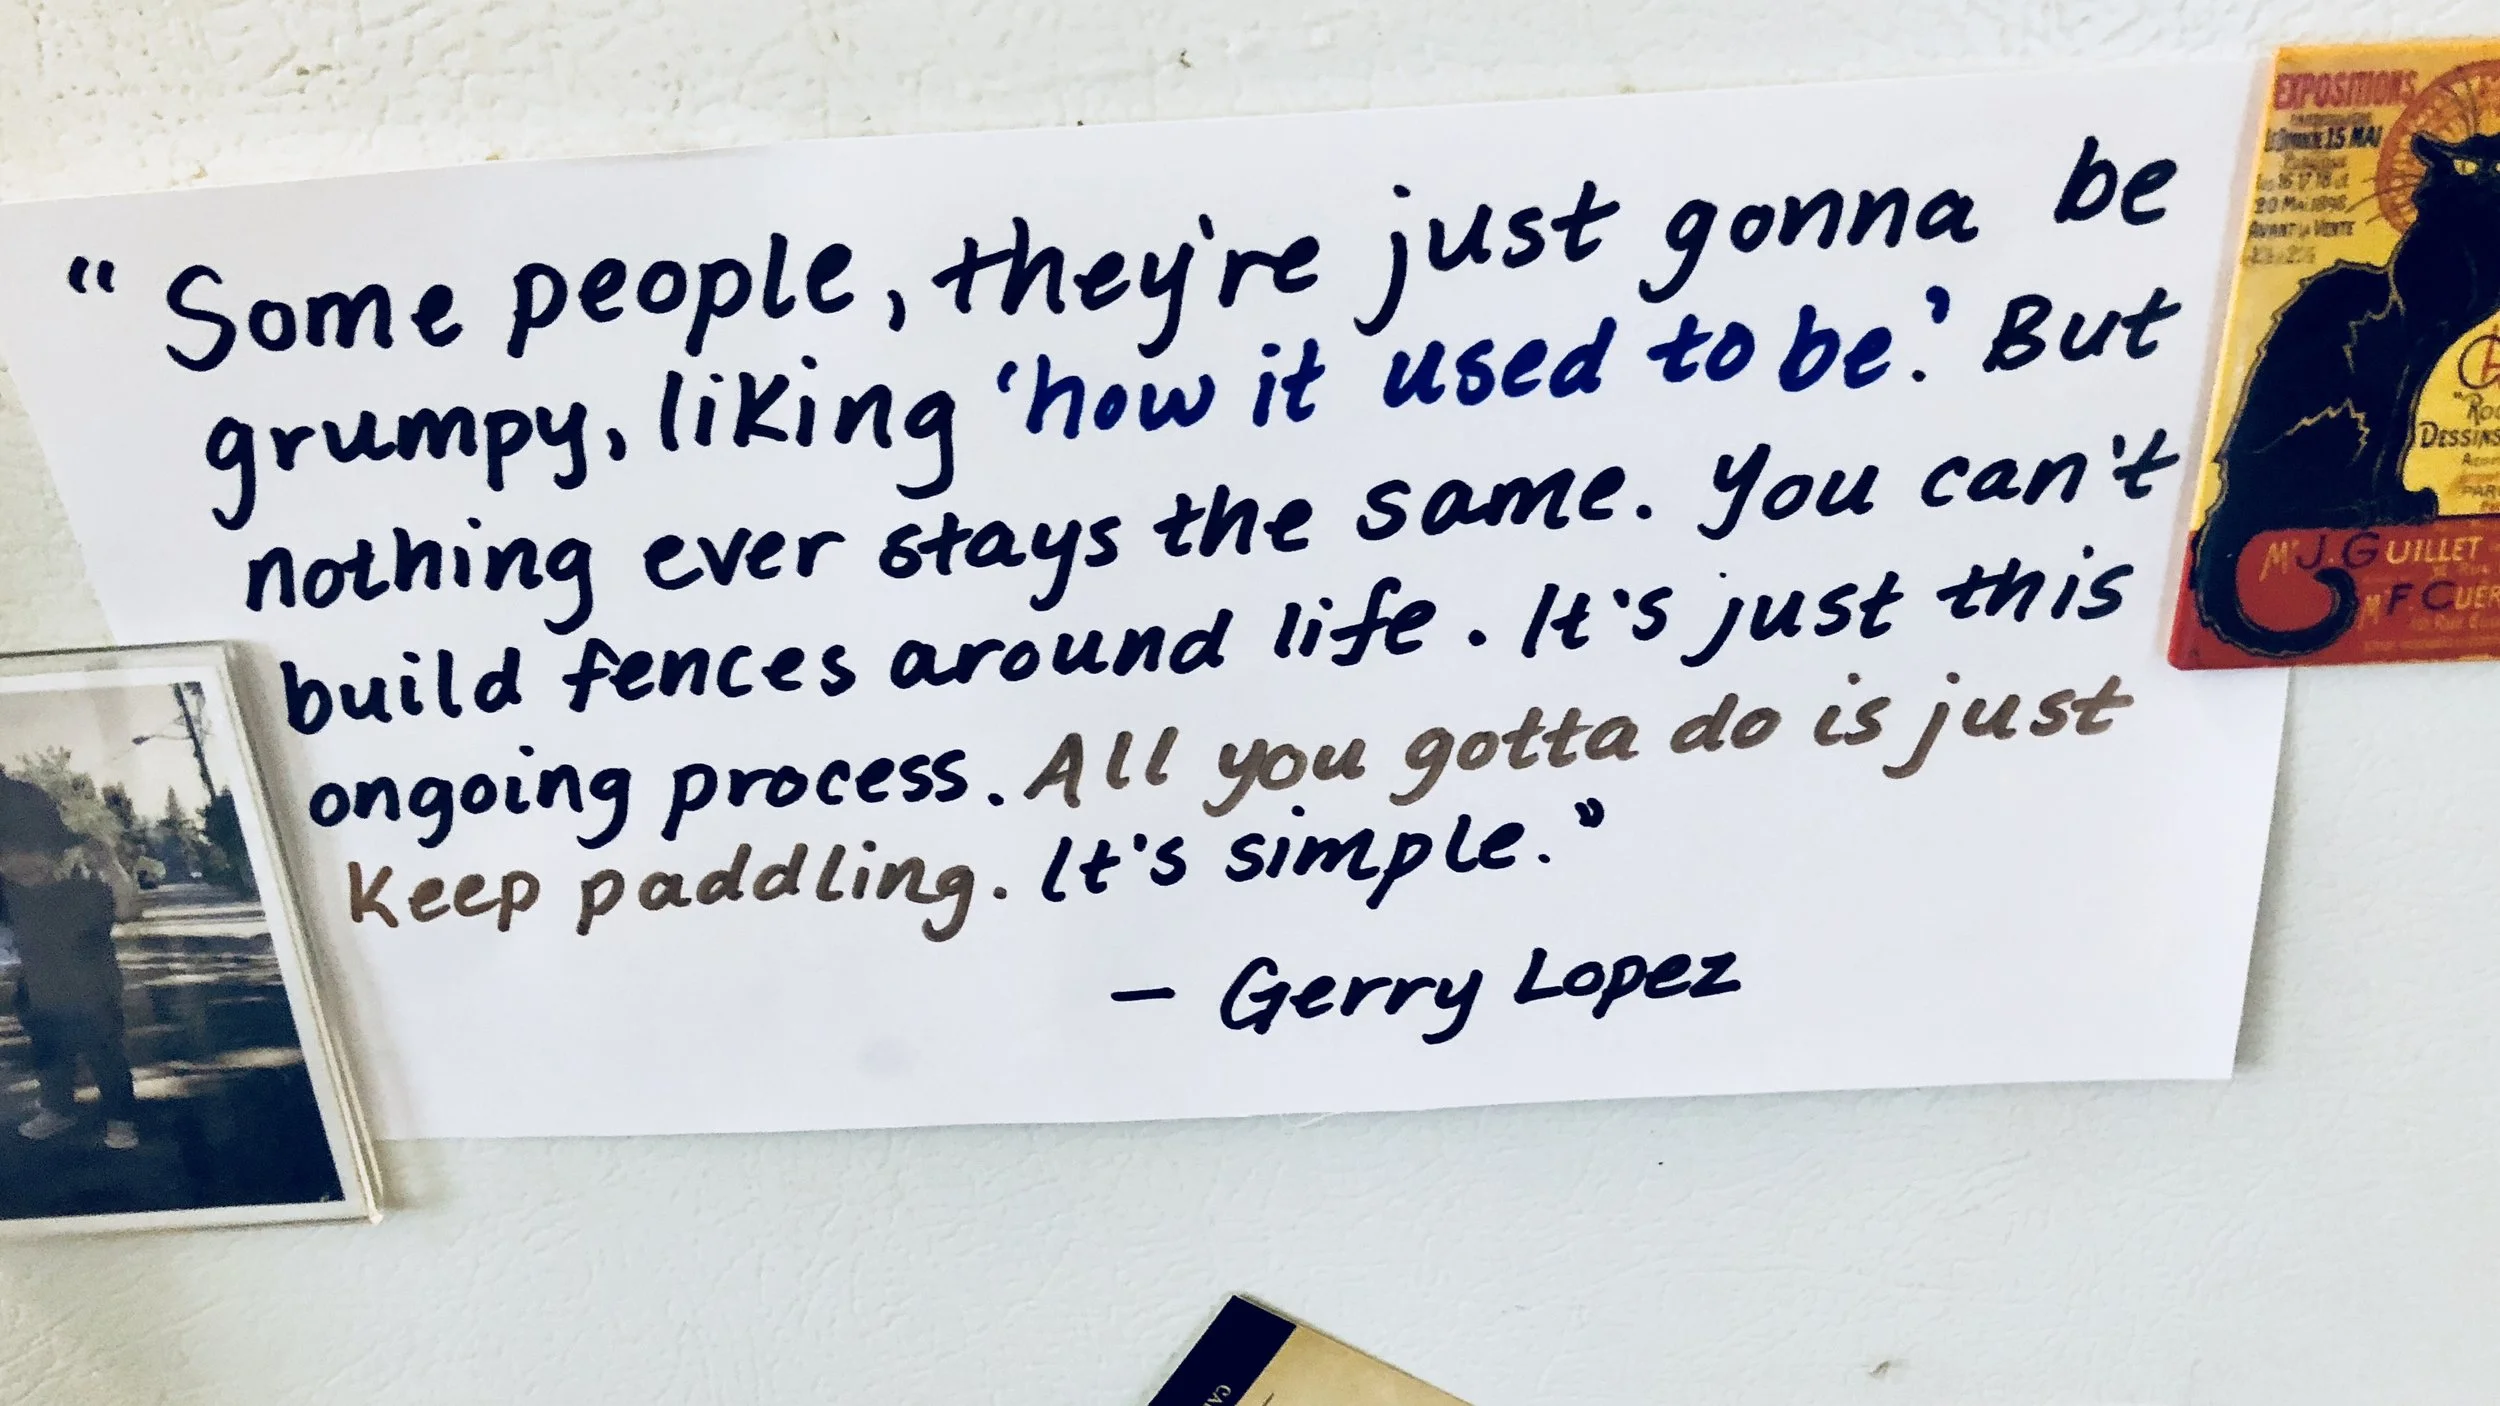 “Some people, they're just gonna be
grumpy, liking ‘how it used to be.’ But
nothing ever stays the same. You can't
build fences around life. It's just this
ongoing process. All you gotta do is just
Keep paddling. It's simple.”
— Gerry Lopez
EXPOSITIONS
15 MAI
20 Mai 1896
AVANT la VENTE
DESSINS
Mr J. GUILLET
Mr F CUER
CA